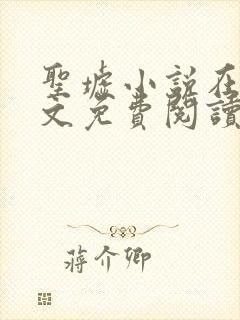 聖墟小說在
文免費閱讀
蔣介卿